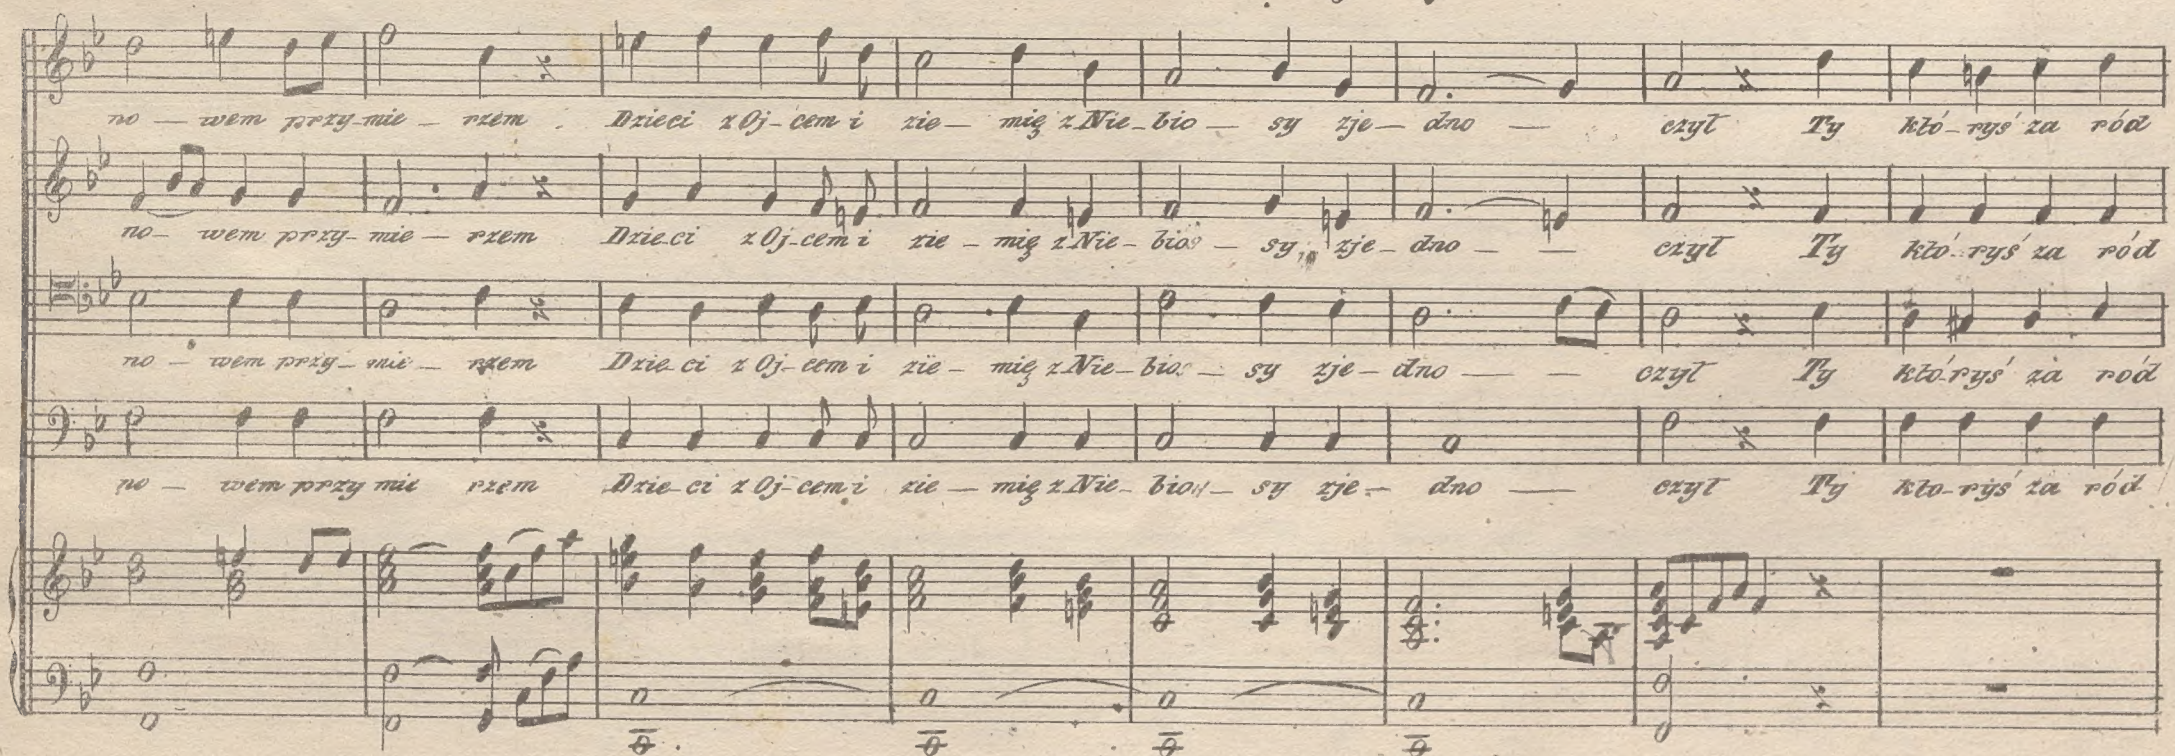 no — wem przy-mie — rzem . Dzieci z Oj-cem i zie — mię z Nie-bio — sy zje — dno — czył Ty któ-ryś za ród
no — wem przy-mie — rzem Dzie-ci z Oj-cem i zie — mię z Nie-bios — sy zje — dno — — czył Ty któ-ryś za ród
no — wem przy-mie — rzem Dzie-ci z Oj-cem i zie — mię z Nie-bios — sy zje — dno — — czył Ty któ-ryś za ród
no — wem przy mie rzem Dzie-ci z Oj-cem i zie — mię z Nie-bios — sy zje — dno — czył Ty kto-ryś za ród